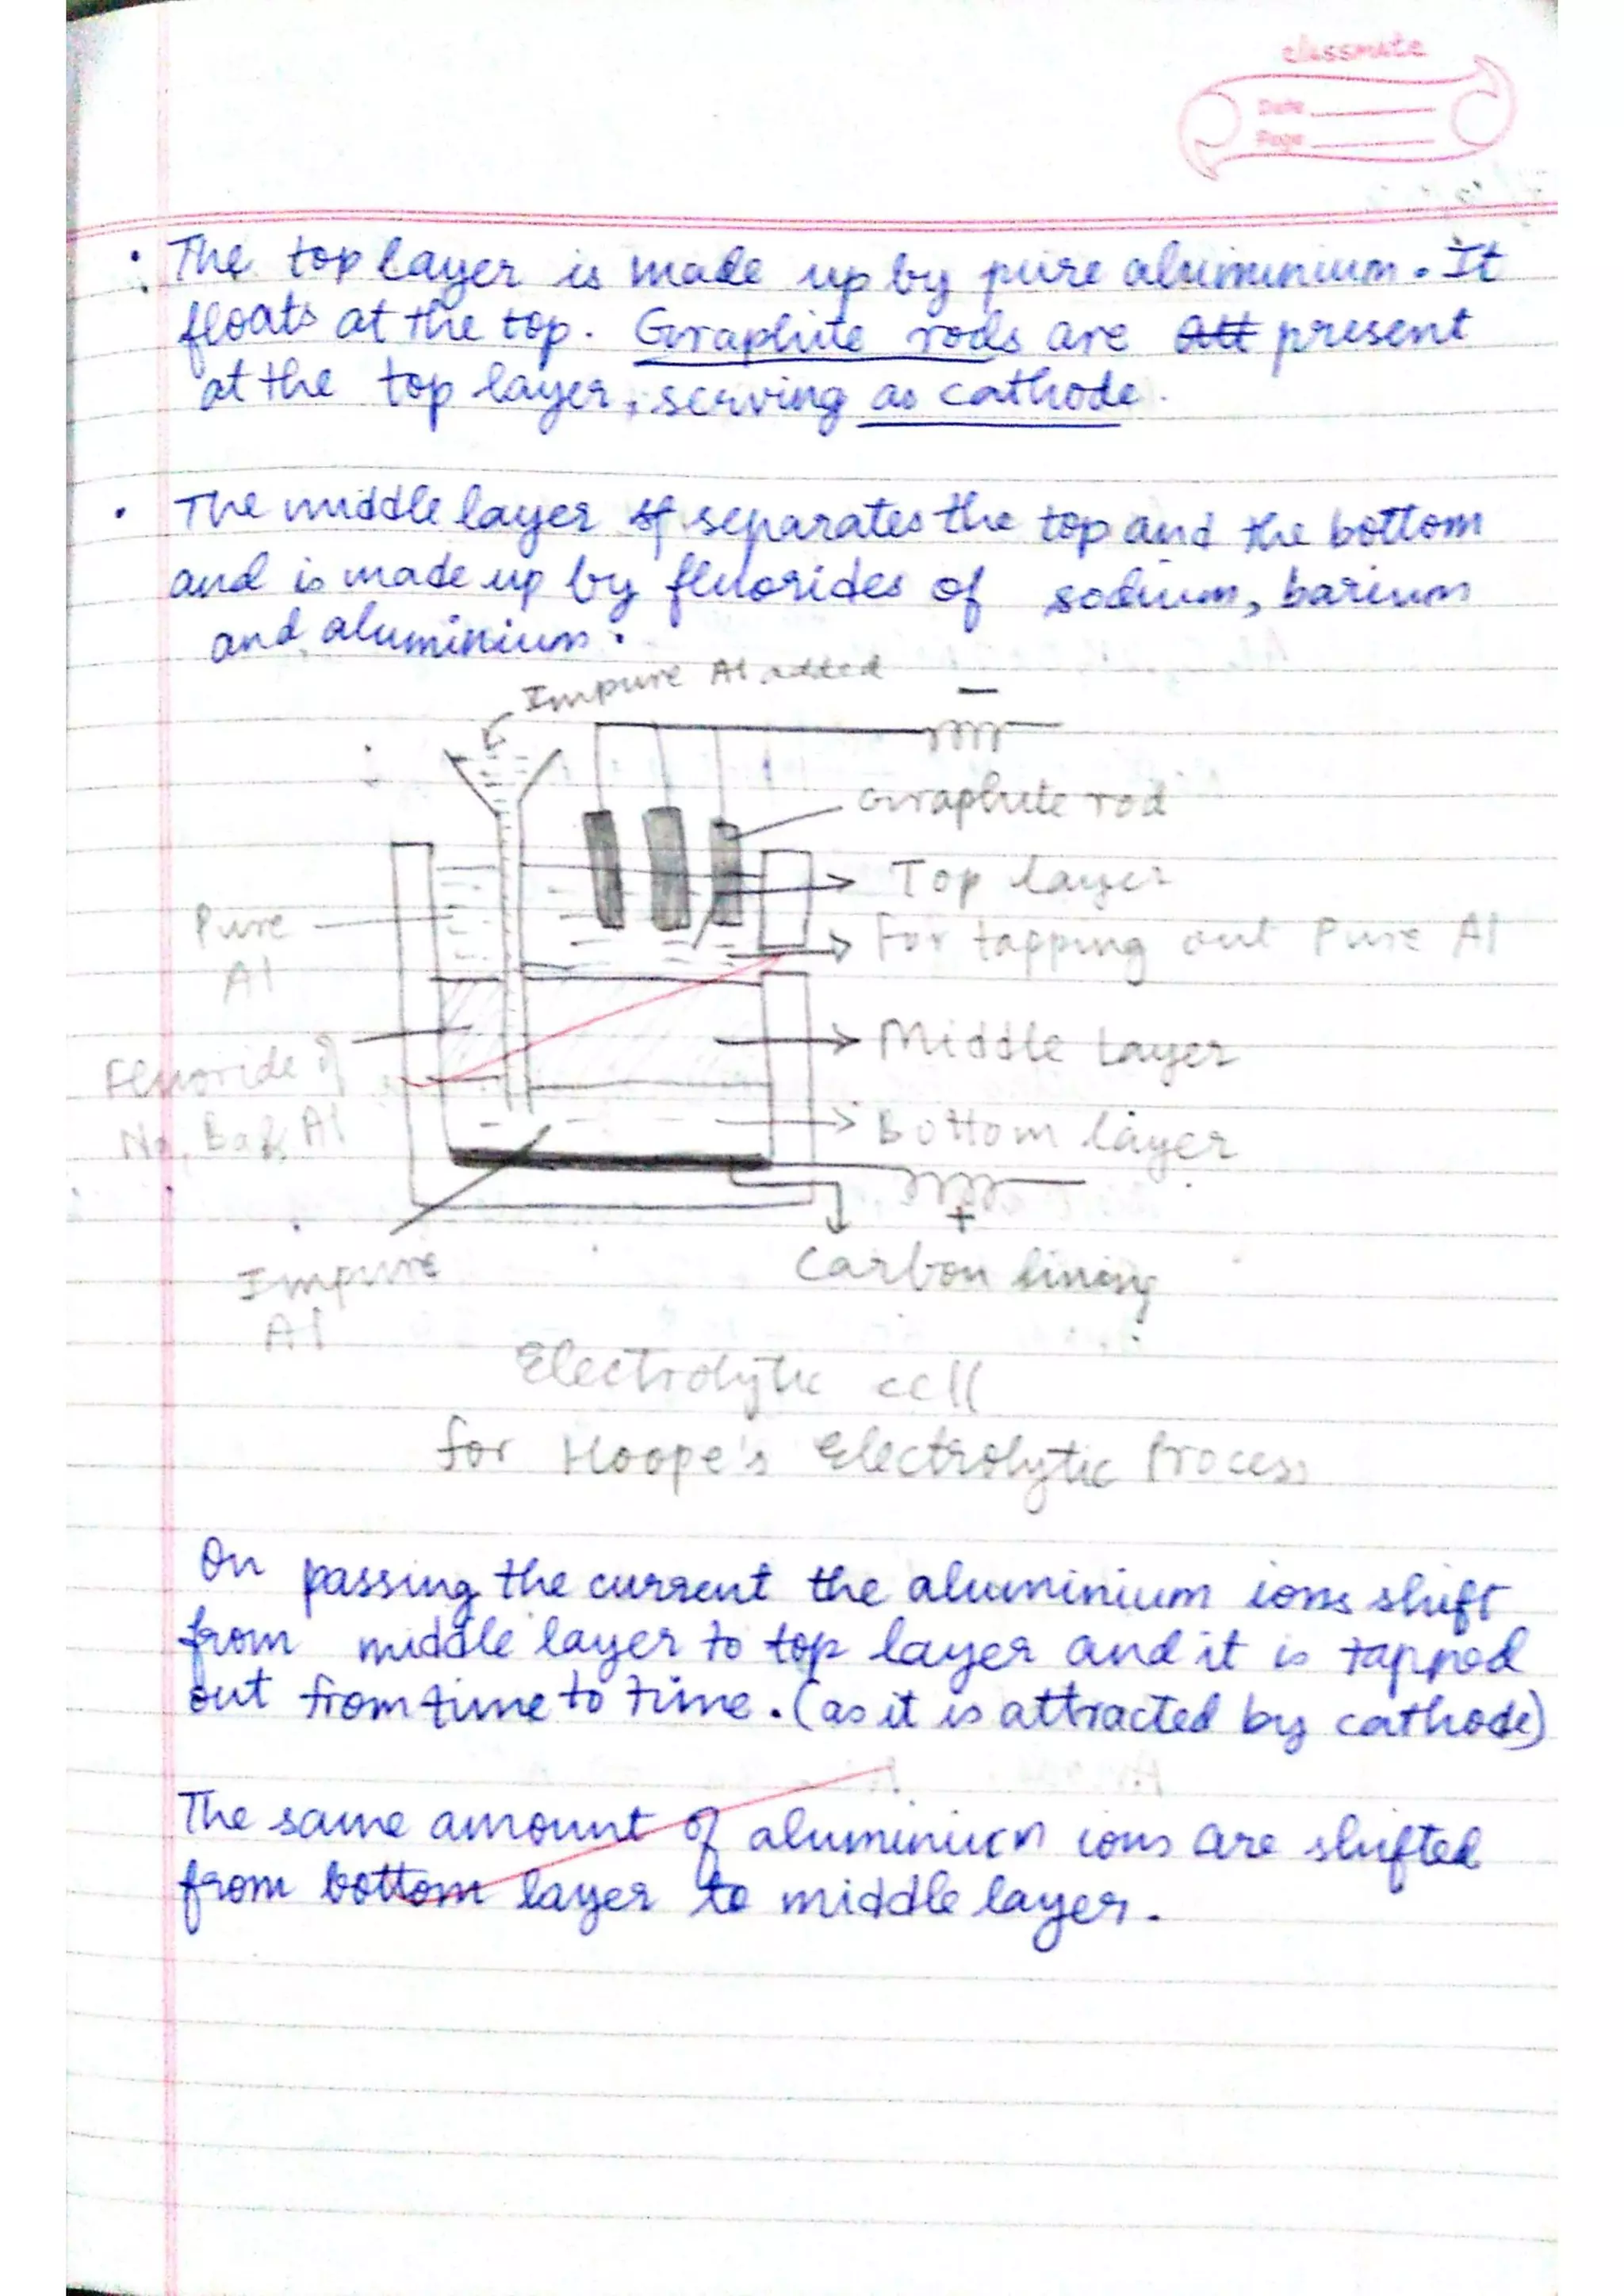 classmate
Date
Page
• The top layer is made up by pure aluminium. It
floats at the top. Graphite rods are present
at the top layer, serving as cathode.
• The middle layer separates the top and the bottom
and is made up by fluorides of sodium, barium
and aluminium.
Impure Al added
−
Graphite rod
Top layer
Pure
Al
For tapping out Pure Al
Middle Layer
Fluoride of
Na, Ba & Al
Bottom layer
+
Impure
Al
Carbon lining
Electrolytic cell
for Hoope's Electrolytic Process
On passing the current the aluminium ions shift
from middle layer to top layer and it is tapped
out from time to time. (as it is attracted by cathode)
The same amount of aluminium ions are shifted
from bottom layer to middle layer.